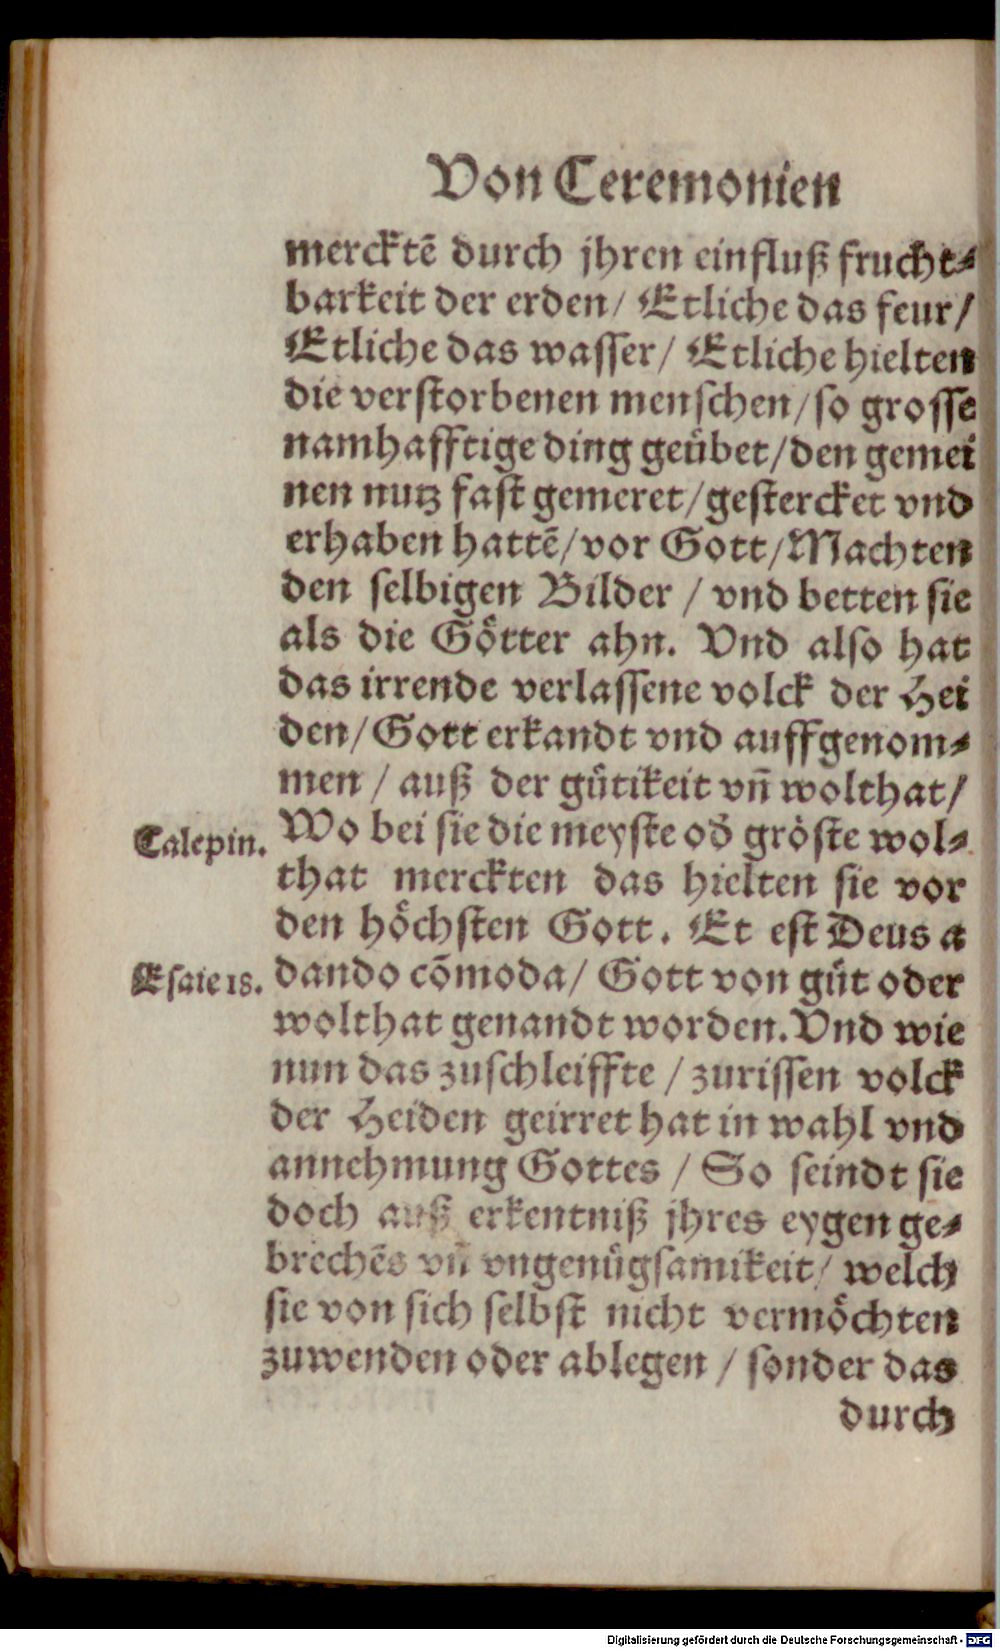 Von Ceremonien
mercktē durch jhren einfluß frucht-
barkeit der erden/ Etliche das feur/
Etliche das wasser/ Etliche hielten
die verstorbenen menschen/so grosse
namhafftige ding geübet/den gemei
nen nutz fast gemeret/gestercket vnd
erhaben hattē/vor Gott/Machten
den selbigen Bilder / vnd betten sie
als die Götter ahn. Vnd also hat
das irrende verlassene volck der Hei
den/Gott erkandt vnd auffgenom-
men / auß der gütikeit vñ wolthat/
Calepin.
Wo bei sie die meyste od̄ gröste wol-
that merckten das hielten sie vor
den höchsten Gott. Et est Deus a
Esaie 18.
dando cōmoda/ Gott von güt oder
wolthat genandt worden. Vnd wie
nun das zuschleiffte / zurissen volck
der Heiden geirret hat in wahl vnd
annehmung Gottes / So seindt sie
doch auß erkentniß jhres eygen ge-
brechēs vñ vngenügsamikeit/ welch
sie von sich selbst nicht vermöchten
zuwenden oder ablegen / sonder das
durch
Digitalisierung gefördert durch die Deutsche Forschungsgemeinschaft - DFG